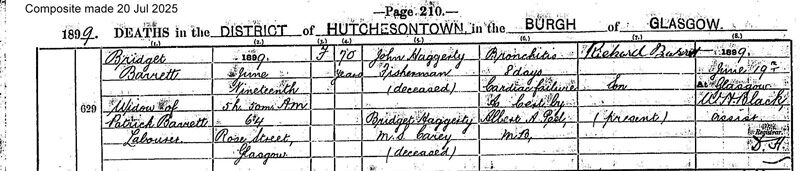 Composite made 20 Jul 2025
—Page 210.—
1899. DEATHS in the DISTRICT of HUTCHESONTOWN, in the BURGH of GLASGOW.
(1.) (2.) (3.) (4.) (5.) (6.) (7.) (8.)
Bridget 1899. F 70 John Haggerty Bronchitis Richard Barrett 1899.
Barrett June years Fisherman 8 days June 19th
Nineteenth (deceased) Cardiac failure Son At Glasgow
629 Widow of 5h. 50m. A.M. As Cert. by Wm Black
Patrick Barrett 64 Bridget Haggerty Albert A. (present) assist.
Labourer. Rose Street, M.S. Carey M.B. Registrar.
Glasgow (deceased)